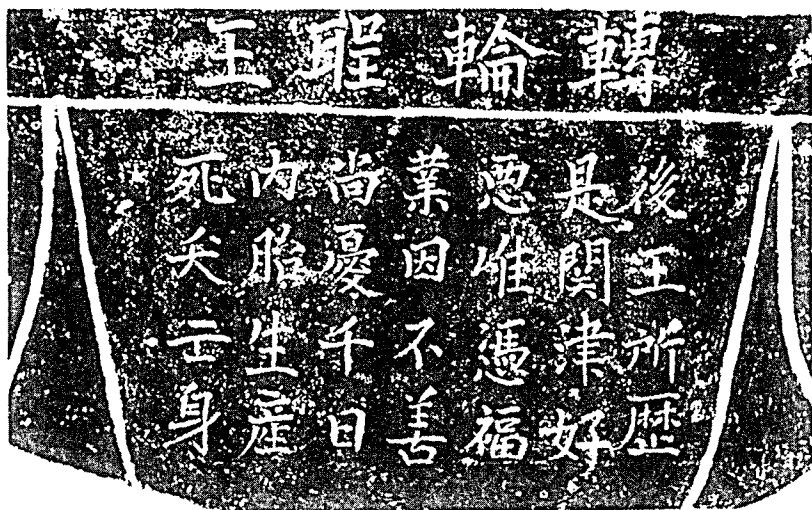 轉輪聖王
後王所歷
是関津好
悪唯憑福
業因不善
尚憂千日
内胎生産
死夭亡身